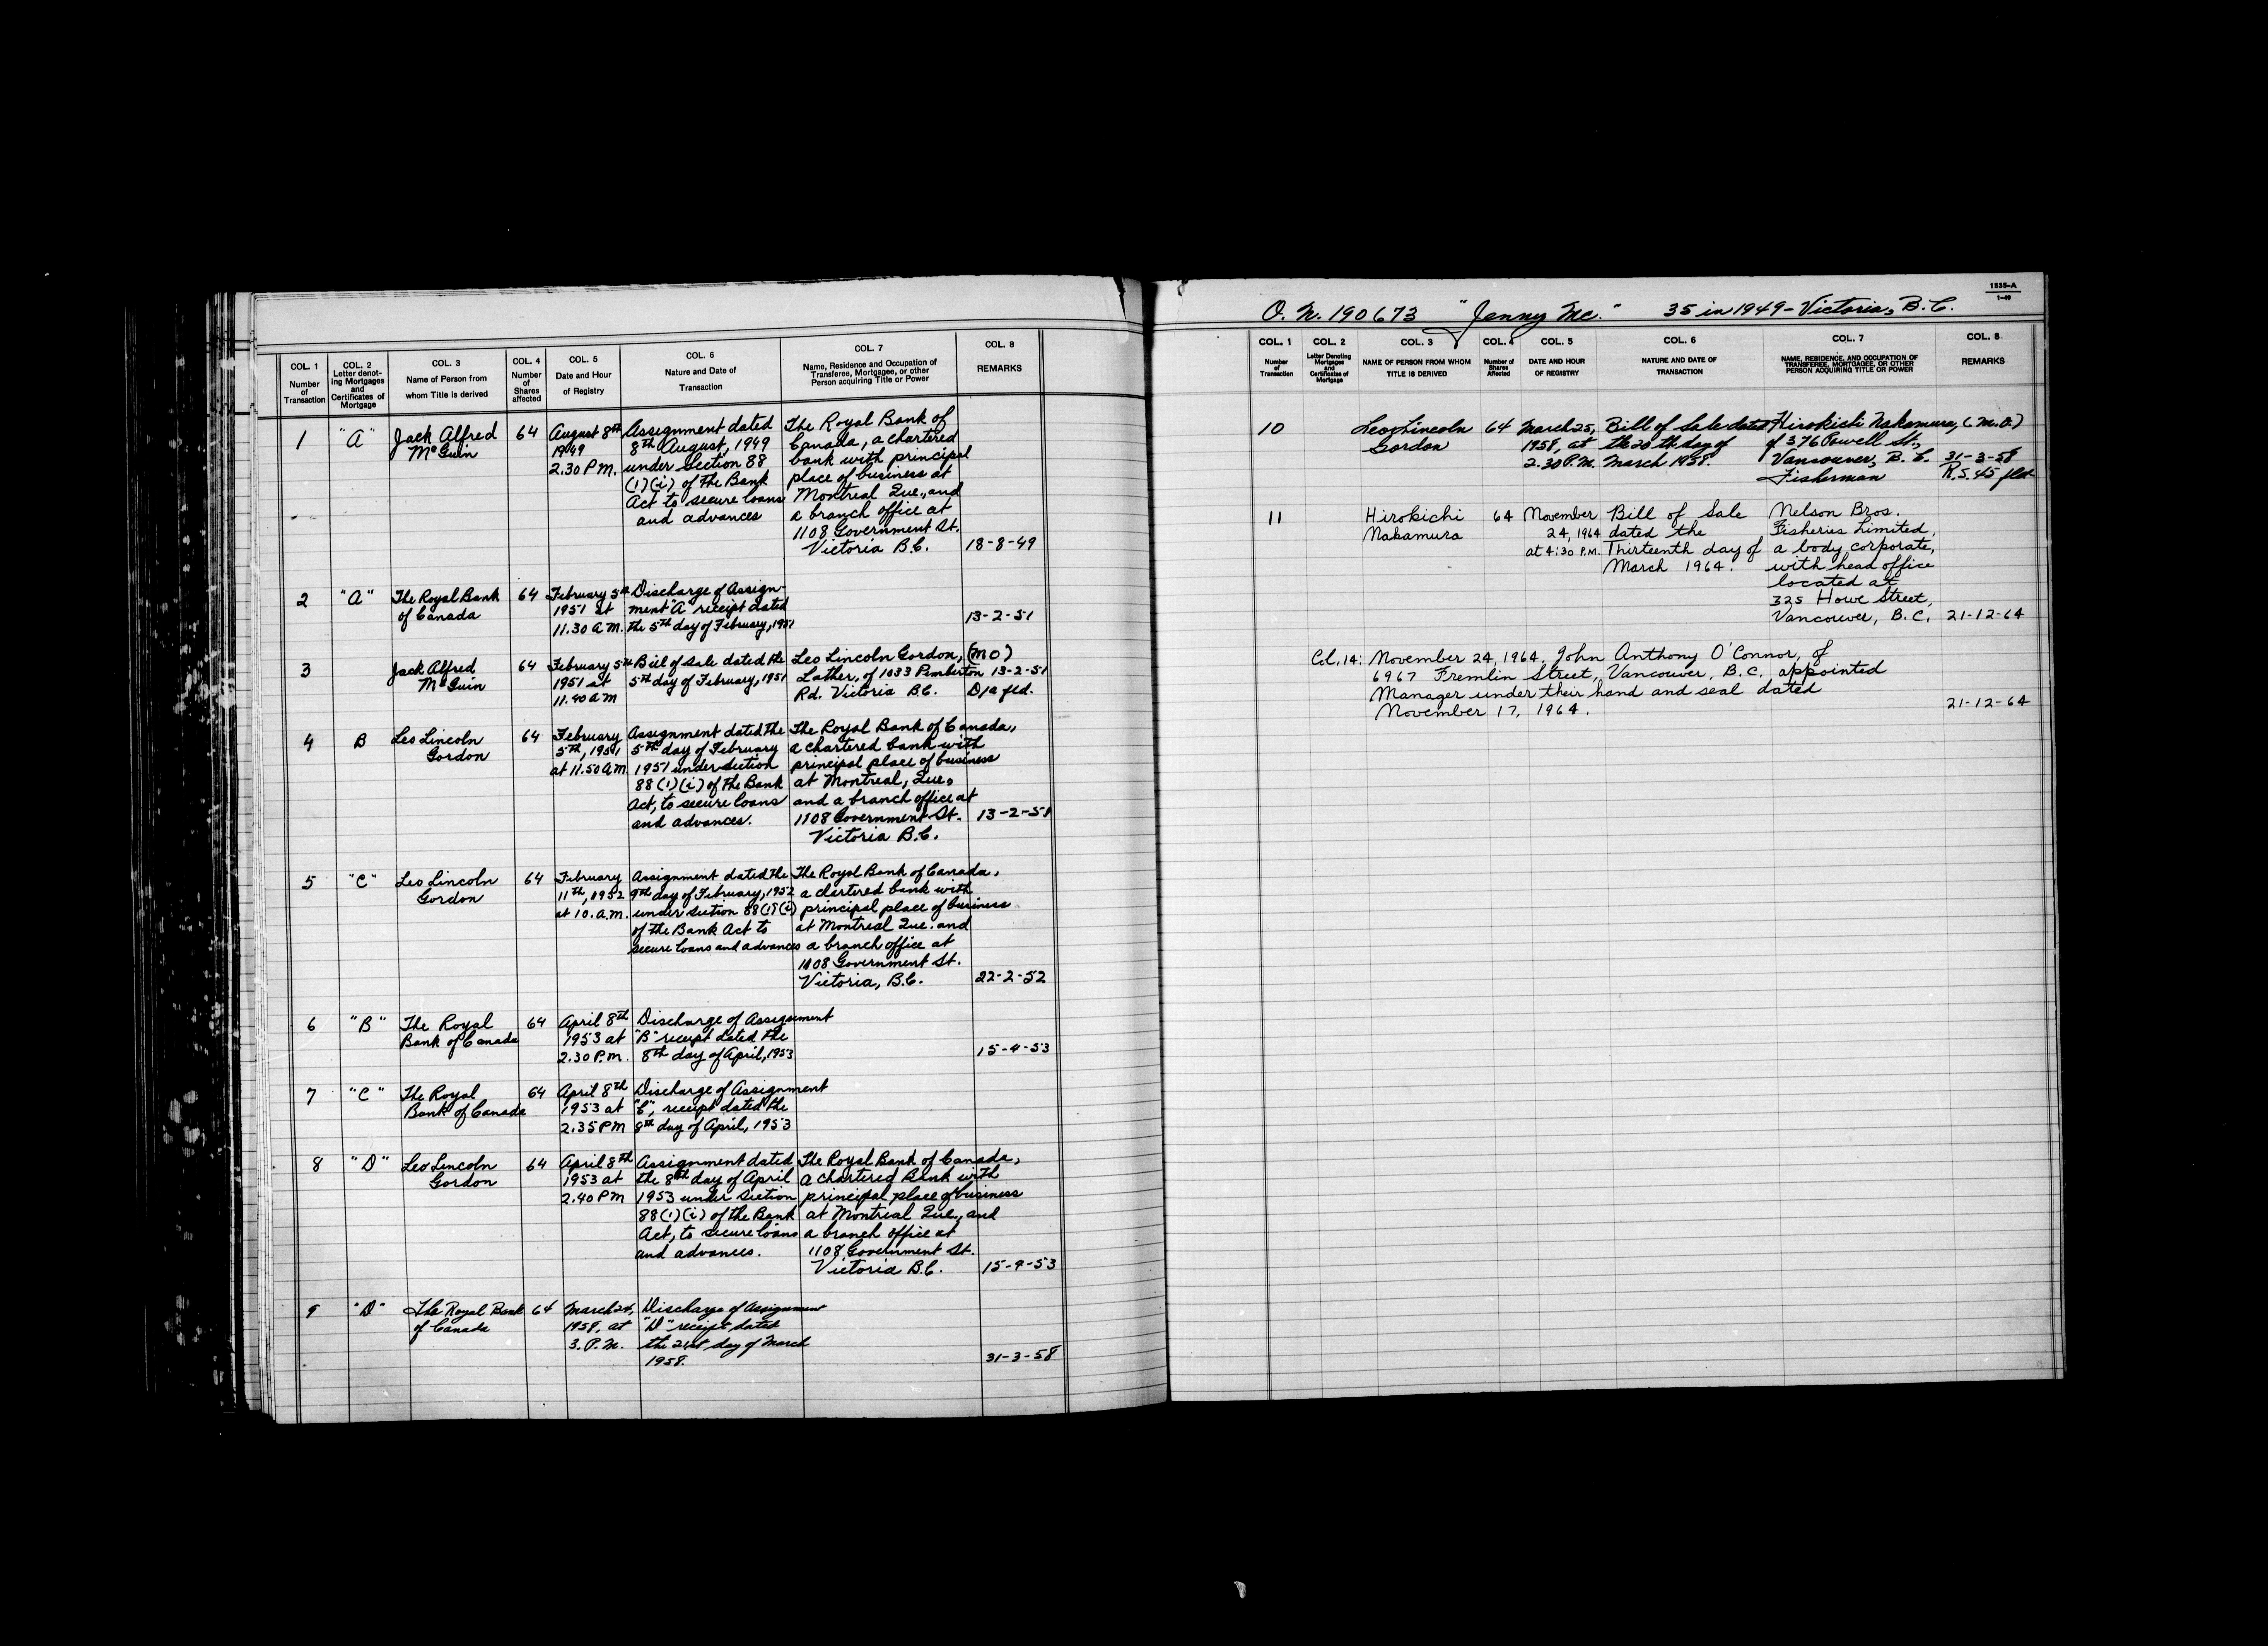 COL. 1
Number
of
Transaction
COL. 2
Letter denot-
ing Mortgages
and
Certificates of
Mortgage
COL. 3
Name of Person from
whom Title is derived
COL. 4
Number
of
Shares
affected
COL. 5
Date and Hour
of Registry
COL. 6
Nature and Date of
Transaction
COL. 7
Name, Residence and Occupation of
Transferee, Mortgagee, or other
Person acquiring Title or Power
COL. 8
REMARKS
1 "A" Jack Alfred 64 August 8th Assignment dated The Royal Bank of
McGuin 1949 8th August, 1949 Canada, a chartered
2.30 P.M. under Section 88 bank with principal
(1)(i) of the Bank place of business at
Act to secure loans Montreal Que., and
and advances a branch office at
1108 Government St.
Victoria B.C. 18-8-49
2 "A" The Royal Bank 64 February 5th Discharge of Assign-
of Canada 1951 at ment "A" receipt dated
11.30 A.M. the 5th day of February, 1951 13-2-51
3 Jack Alfred 64 February 5th Bill of Sale dated the Leo Lincoln Gordon, (MO)
McGuin 1951 at 5th day of February, 1951 Lather, of 1033 Pemberton 13-2-51
11.40 A M Rd. Victoria B.C. D/a fld.
4 B Leo Lincoln 64 February Assignment dated the The Royal Bank of Canada,
Gordon 5th, 1951 5th day of February a chartered bank with
at 11.50 A.M. 1951 under section principal place of business
88 (1)(i) of the Bank at Montreal, Que,
Act, to secure loans and a branch office at
and advances. 1108 Government St. 13-2-51
Victoria B.C.
5 "C" Leo Lincoln 64 February Assignment dated the The Royal Bank of Canada,
Gordon 11th, 1952 9th day of February, 1952 a chartered bank with
at 10. a.m. under section 88(1)(i) principal place of business
of the Bank Act to at Montreal Que. and
secure loans and advances a branch office at
1108 Government St.
Victoria, B.C. 22-2-52
6 "B" The Royal 64 April 8th Discharge of Assignment
Bank of Canada 1953 at "B" receipt dated the
2.30 P.M. 8th day of April, 1953 15-4-53
7 "C" The Royal 64 April 8th Discharge of Assignment
Bank of Canada 1953 at "C", receipt dated the
2.35 PM 8th day of April, 1953
8 "D" Leo Lincoln 64 April 8th Assignment dated The Royal Bank of Canada,
Gordon 1953 at the 8th day of April a chartered Bank with
2.40 PM 1953 under section principal place of business
88(1)(i) of the Bank at Montreal Que., and
Act, to secure loans a branch office at
and advances. 1108 Government St.
Victoria B.C. 15-4-53
9 "D" The Royal Bank 64 March 25, Discharge of Assignment
of Canada 1958, at "D" receipt dated
3. P.M. the 21st day of March
1958. 31-3-58
1535-A
1-49
O. N. 190673 "Jenny Mc." 35 in 1949 - Victoria, B.C.
COL. 1
Number
of
Transaction
COL. 2
Letter Denoting
Mortgages
and
Certificates of
Mortgage
COL. 3
NAME OF PERSON FROM WHOM
TITLE IS DERIVED
COL. 4
Number of
Shares
Affected
COL. 5
DATE AND HOUR
OF REGISTRY
COL. 6
NATURE AND DATE OF
TRANSACTION
COL. 7
NAME, RESIDENCE, AND OCCUPATION OF
TRANSFEREE, MORTGAGEE, OR OTHER
PERSON ACQUIRING TITLE OR POWER
COL. 8
REMARKS
10 Leo Lincoln 64 March 25, Bill of Sale dated Hirokichi Nakamura, (M.O.)
Gordon 1958, at the 20th day of of 376 Powell St.,
2.30 P.M. March 1958. Vancouver, B.C. 31-3-58
Fisherman R.S. 45 fld.
11 Hirokichi 64 November Bill of Sale Nelson Bros.
Nakamura 24, 1964 dated the Fisheries Limited,
at 4:30 P.M. Thirteenth day of a body corporate,
March 1964. with head office
located at
325 Howe Street,
Vancouver, B.C. 21-12-64
Col. 14: November 24, 1964. John Anthony O'Connor, of
6967 Fremlin Street, Vancouver, B.C. appointed
Manager under their hand and seal dated
November 17, 1964. 21-12-64